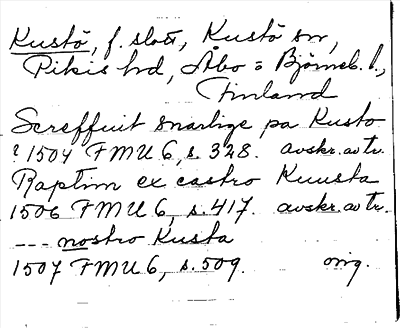 Kustö, f. slott, Kustö sn,
Pikis hd, Åbo o Björneb. l.,
Finland
Screffuit snarlige pa Kusto
? 1504 FMU 6, s. 328. avskr. av tr.
Raptim ex castro Kuusta
1506 FMU 6, s. 417. avskr. av tr.
--- nostro Kusta
1507 FMU 6, s. 509. orig.